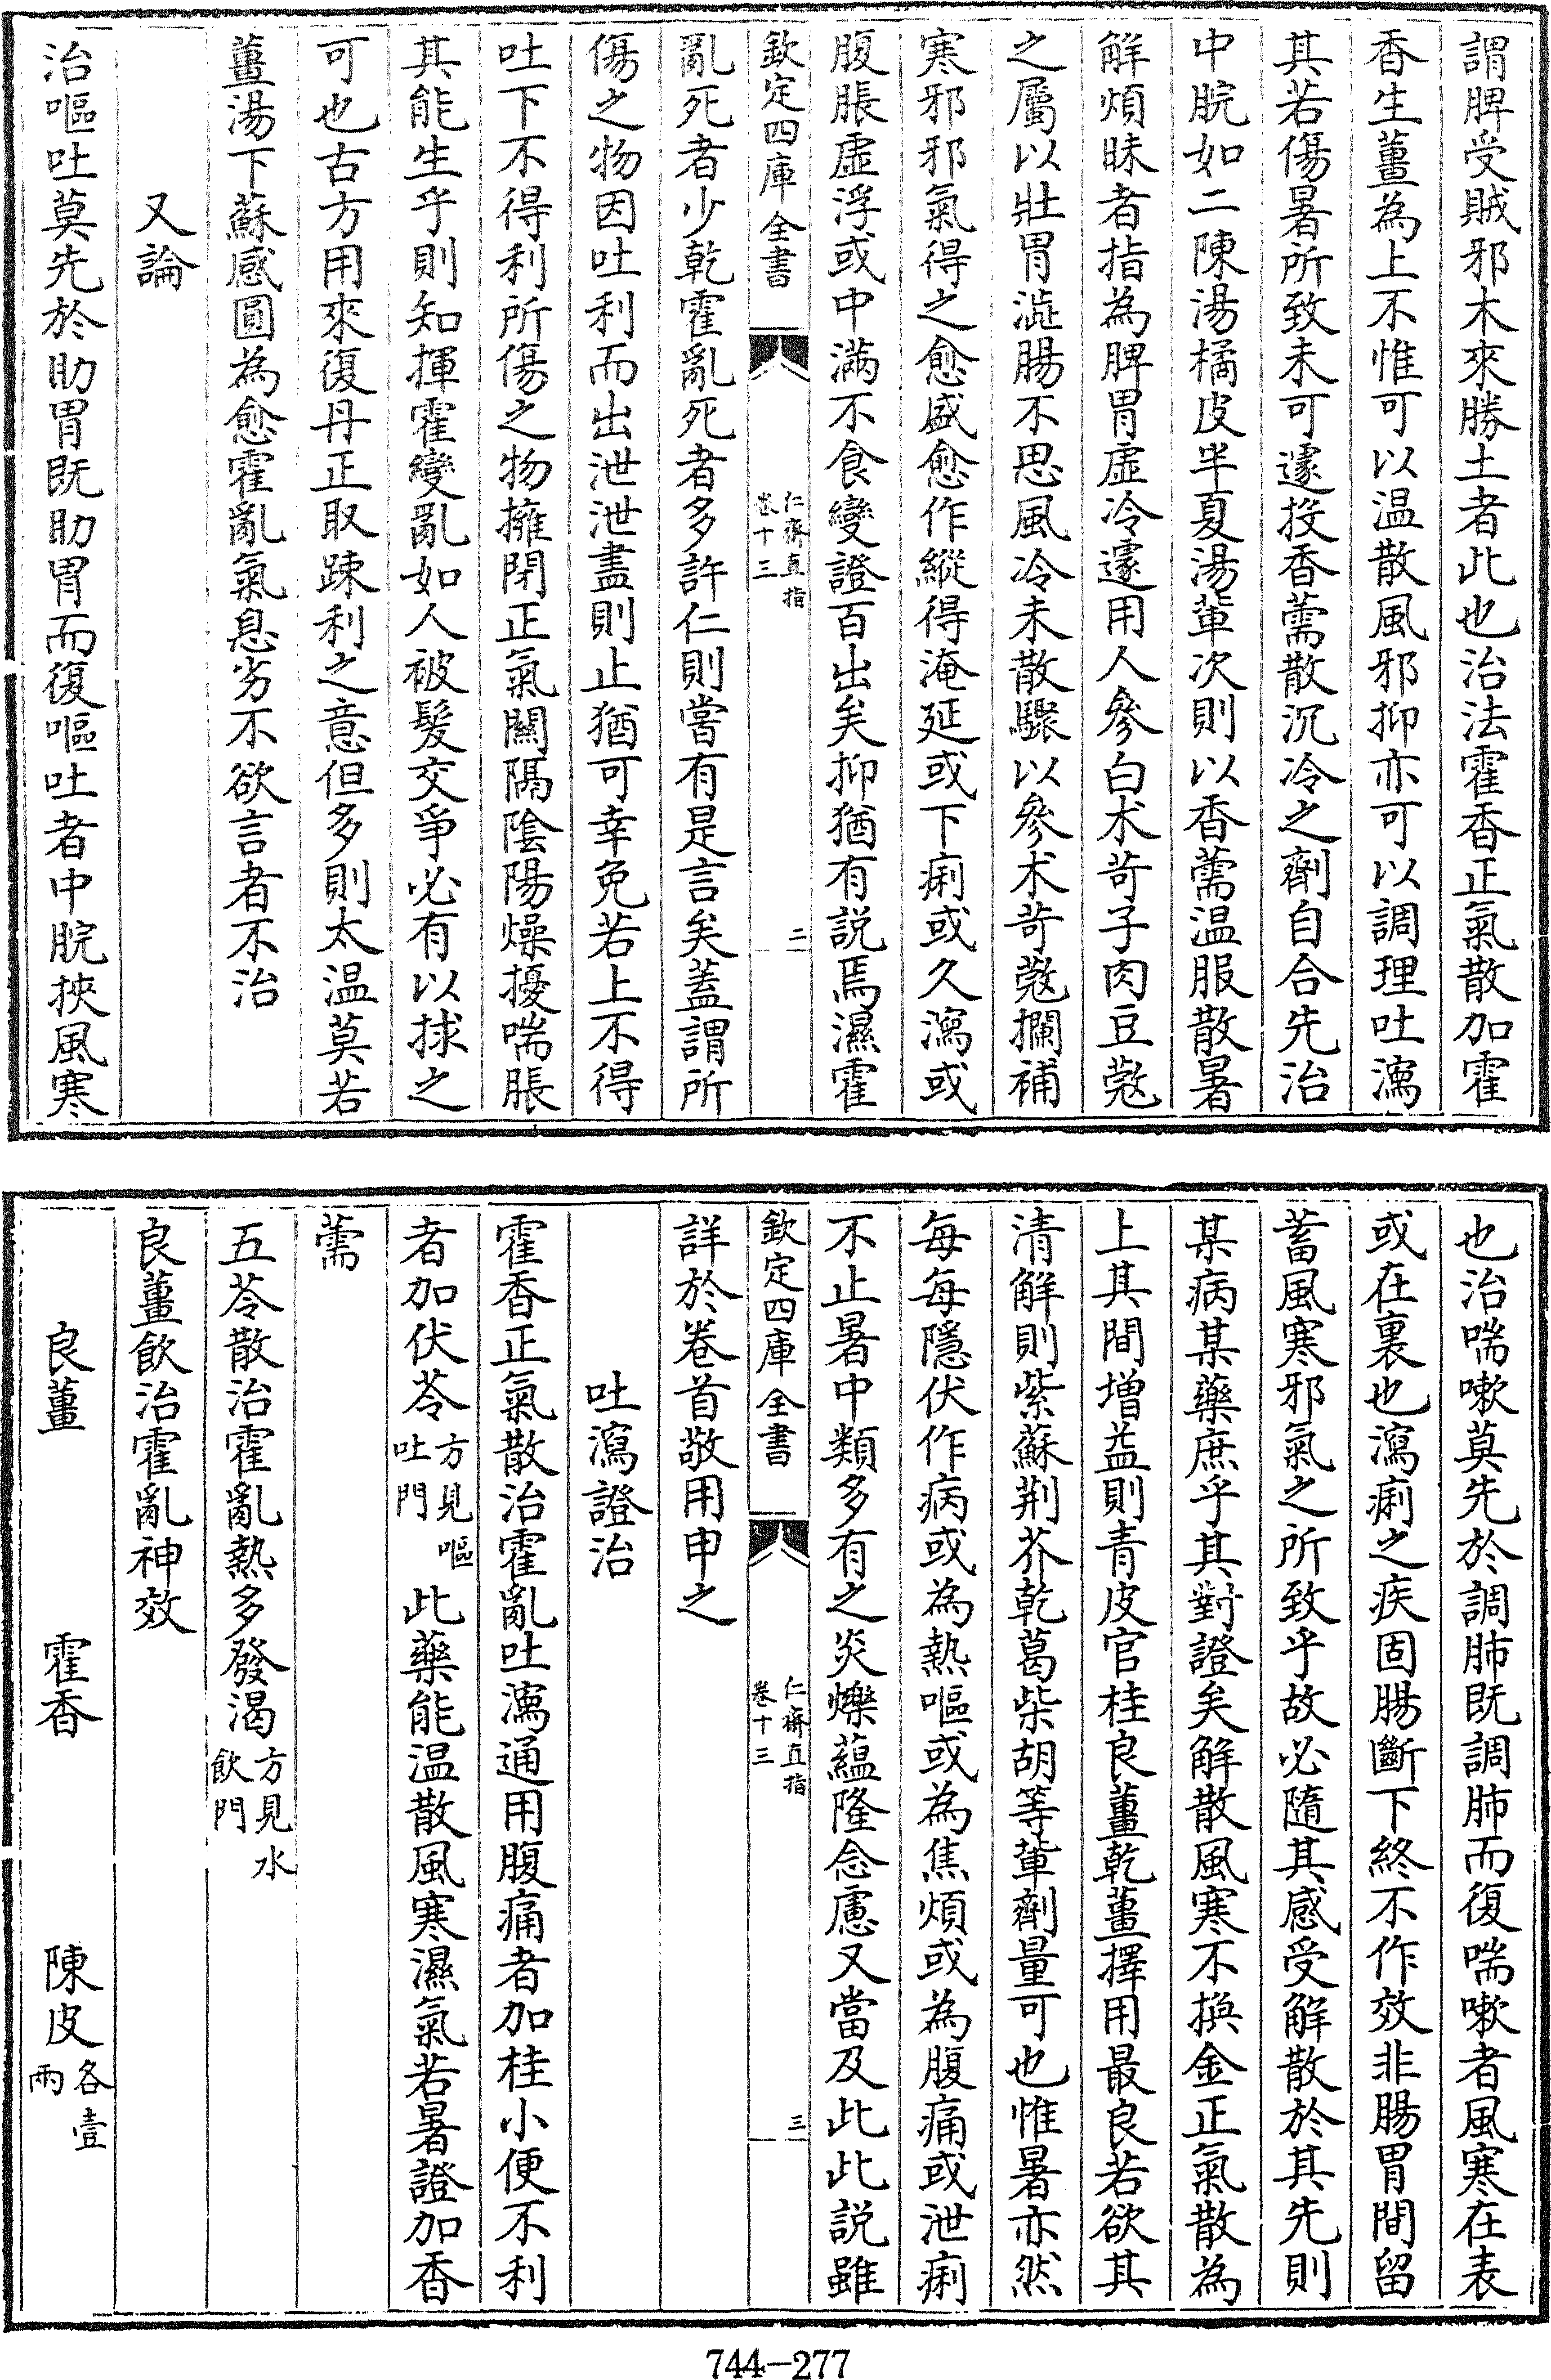 謂脾受賊邪木來勝土者此也治法霍香正氣散加霍
香生薑為上不惟可以温散風邪抑亦可以調理吐瀉
其若傷暑所致未可遽投香薷散沉冷之劑自合先治
中脘如二陳湯橘皮半夏湯輩次則以香薷温服散暑
解煩昧者指為脾胃虚冷遽用人參白术苛子肉豆蔻
之屬以壯胃澁腸不思風冷未散驟以參术苛蔻攔補
寒邪邪氣得之愈盛愈作縱得淹延或下痢或久瀉或
腹脹虚浮或中滿不食變證百出矣抑猶有説焉濕霍
欽定四庫全書
仁齋直指
卷十三
二
亂死者少乾霍亂死者多許仁則當有是言矣蓋謂所
傷之物因吐利而出泄泄盡則止猶可幸免若上不得
吐下不得利所傷之物擁閉正氣關隔陰陽燥擾喘脹
其能生乎則知揮霍變亂如人被髮交爭必有以捄之
可也古方用來復丹正取疎利之意但多則太温莫若
薑湯下蘇感圓為愈霍亂氣息劣不欲言者不治
又論
治嘔吐莫先於助胃既助胃而復嘔吐者中脘挾風寒
也治喘嗽莫先於調肺既調肺而復喘嗽者風寒在表
或在裏也瀉痢之疾固腸斷下終不作效非腸胃間留
蓄風寒邪氣之所致乎故必隨其感受解散於其先則
某病某藥庶乎其對證矣解散風寒不換金正氣散為
上其間增益則青皮官桂良薑乾薑擇用最良若欲其
清解則紫蘇荆芥乾葛柴胡等輩劑量可也惟暑亦然
每每隱伏作病或為熱嘔或為焦煩或為腹痛或泄痢
不止暑中類多有之炎爍蘊隆念慮又當及此此説雖
欽定四庫全書
仁齋直指
卷十三
三
詳於卷首敬用申之
吐瀉證治
霍香正氣散治霍亂吐瀉通用腹痛者加桂小便不利
者加伏苓方見嘔吐門此藥能温散風寒濕氣若暑證加香
薷
五苓散治霍亂熱多發渴方見水飲門
良薑飲治霍亂神效
良薑 霍香 陳皮各壹兩
744-277